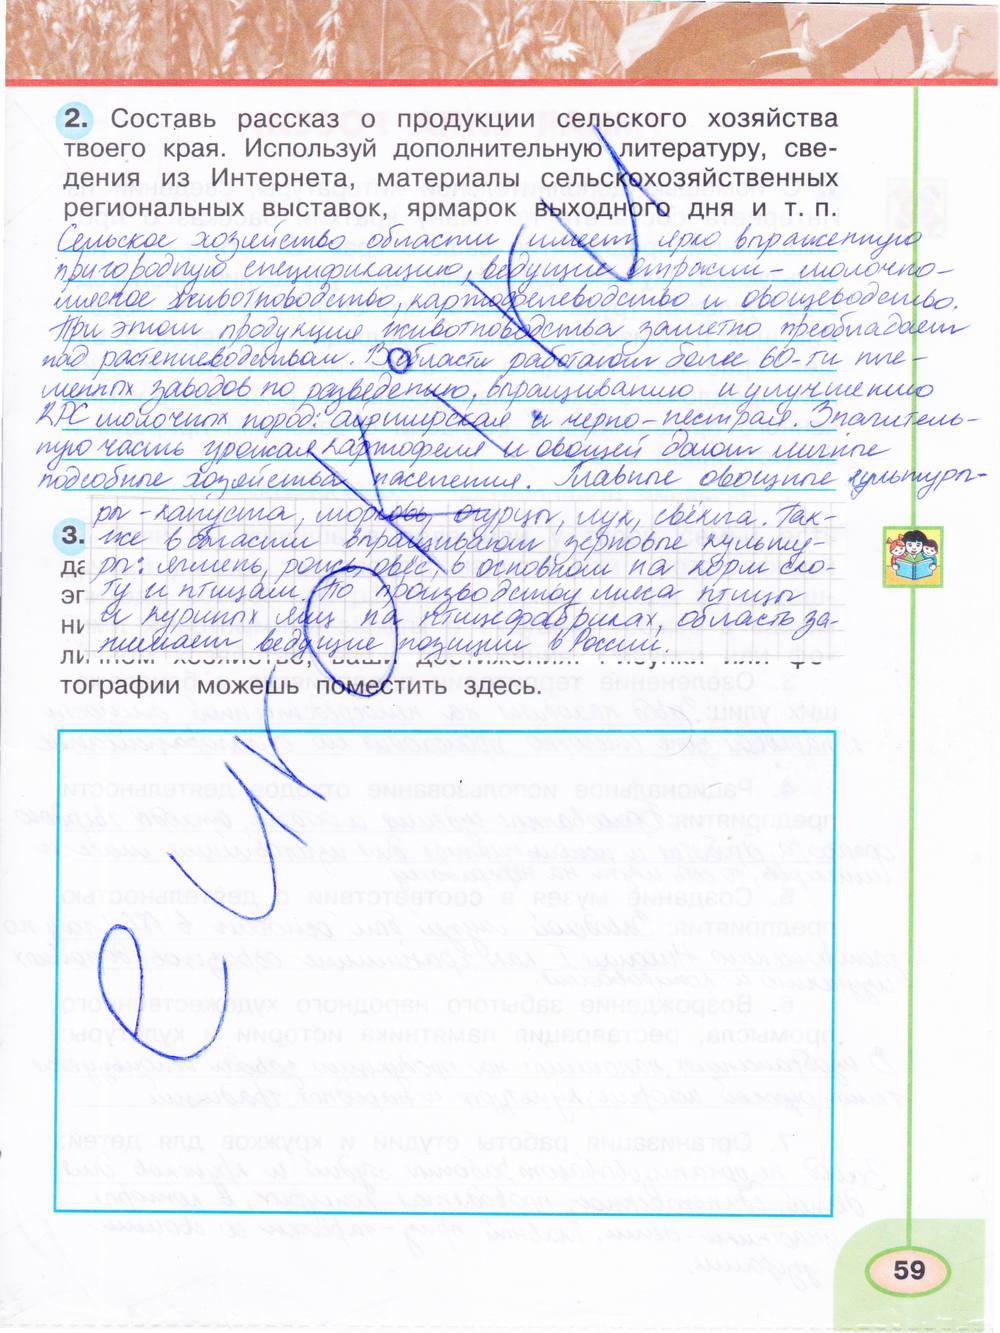 2. Составь рассказ о продукции сельского хозяйства
твоего края. Используй дополнительную литературу, све-
дения из Интернета, материалы сельскохозяйственных
региональных выставок, ярмарок выходного дня и т. п.:
Сельское хозяйство области имеет ярко выраженную
пригородную спецификацию, ведущие отрасли - молочно-
мясное животноводство, картофелеводство и овощеводство.
При этом продукция животноводства заметно преобладает
над растениеводством. В области работают более 60-ти пле-
менных заводов по разведению, выращиванию и улучшению
КРС молочных пород: айрширская и черно-пестрая. Значитель-
ную часть урожая картофеля и овощей дают личные
подсобные хозяйства населения. Главные овощные культуры-
ры - капуста, морковь, огурцы, лук, свёкла. Так-
3. же в области выращивают зерновые культу-
да ры: ячмень, рожь, овёс, в основном на корм ско-
эг ту и птицам. По производству мяса птицы
ни и куриных яиц на птицефабриках, область за-
нимает ведущие позиции в России.
личном хозяйстве, ваши достижения
тографии можешь поместить здесь.
е инокулу
59